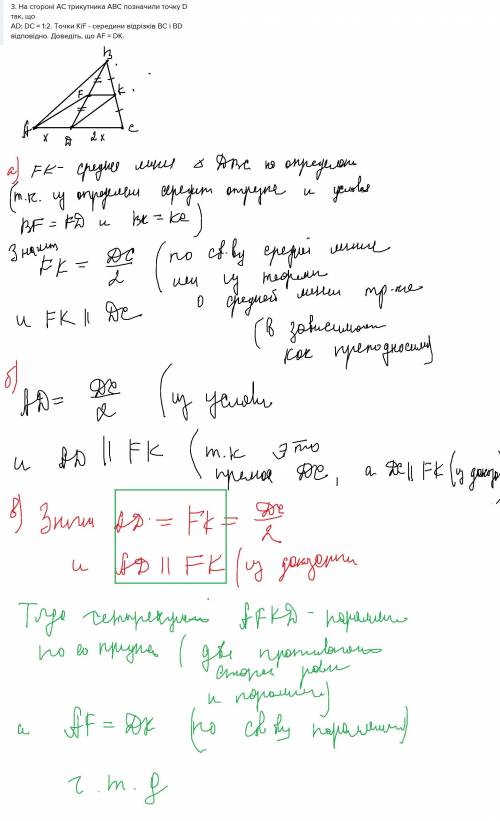 3. На стороні AC трикутника ABC позначили точку D
так, що
AD: DC = 1:2. Точки КіF - середини відрізків BC і BD
відповідно. Доведіть, що AF = DK.
B
F K
A x D 2x C
а) FK - средняя линия △ DBC по определен
(т.к. из определен середин отрезка и условия
BF = FD и BK = KC)
Значит
FK = DC/2 (по св.ву средней линии
или из теоремы
о средней линии тр-ка
и FK || DC
(в зависимости
как преподносили)
б)
AD = DC/2 (из услови
и AD || FK (т.к это
прямая DC, а DC || FK (из доказ
в) Значит AD = FK = DC/2
и AD || FK (из доказан
Тогда четырехугол AFKD - паралел
по его призна (две противополо
сторон равн
и паралел)
а AF = DK (по св ву паралел)
ч.т.д